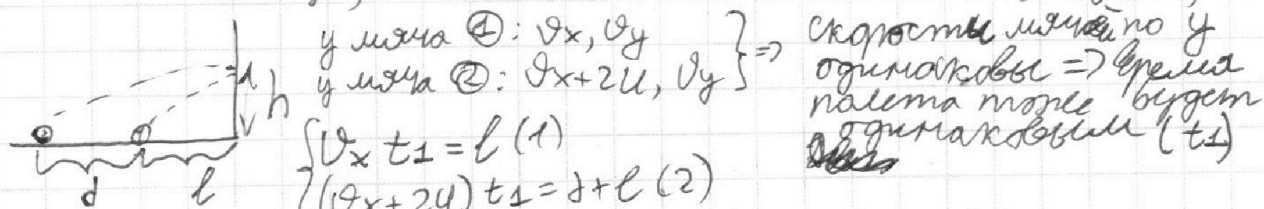 у мяча ①: ϑx, ϑy
у мяча ②: ϑx+2U, ϑy } =>
скорости мячей по y
одинаковы => время
полета тоже будет
одинаковым (t1)
h
d l
{ ϑx t1 = l (1)
(ϑx+2U) t1 = d+l (2)